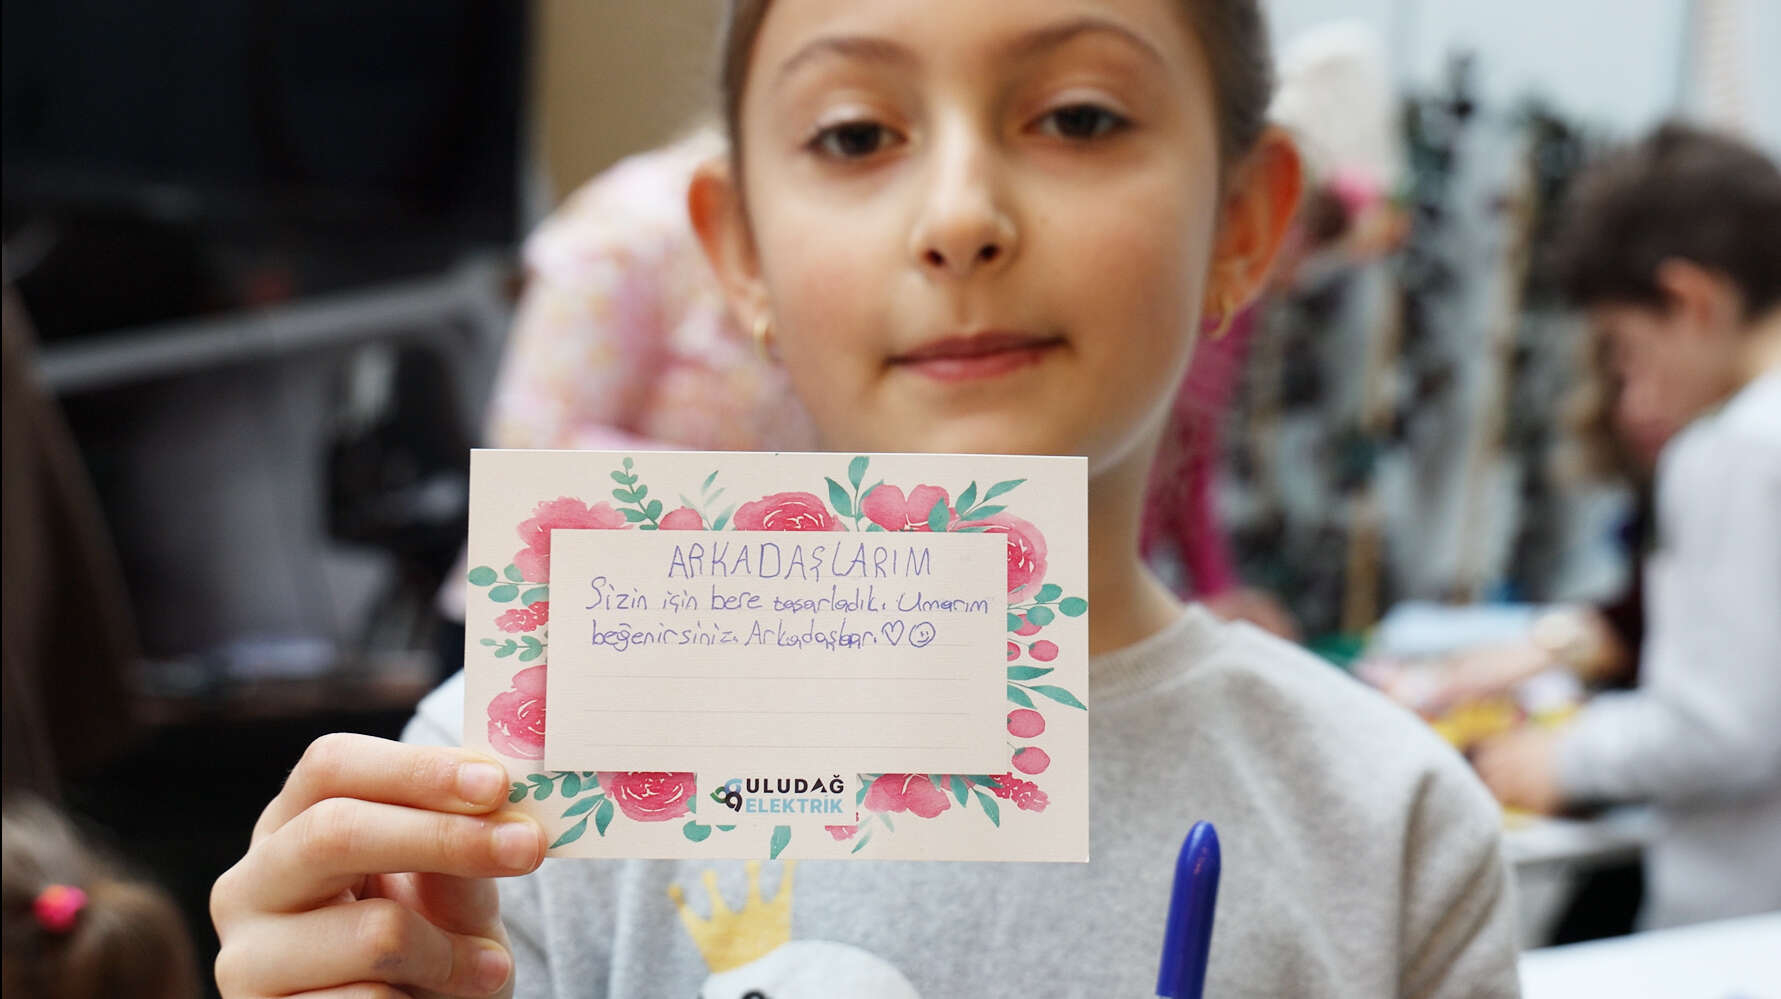 ARKADAŞLARIM
Sizin için bere tasarladık. Umarım
beğenirsiniz. Arkadaşlar.♡☺
ULUDAĞ
ELEKTRİK